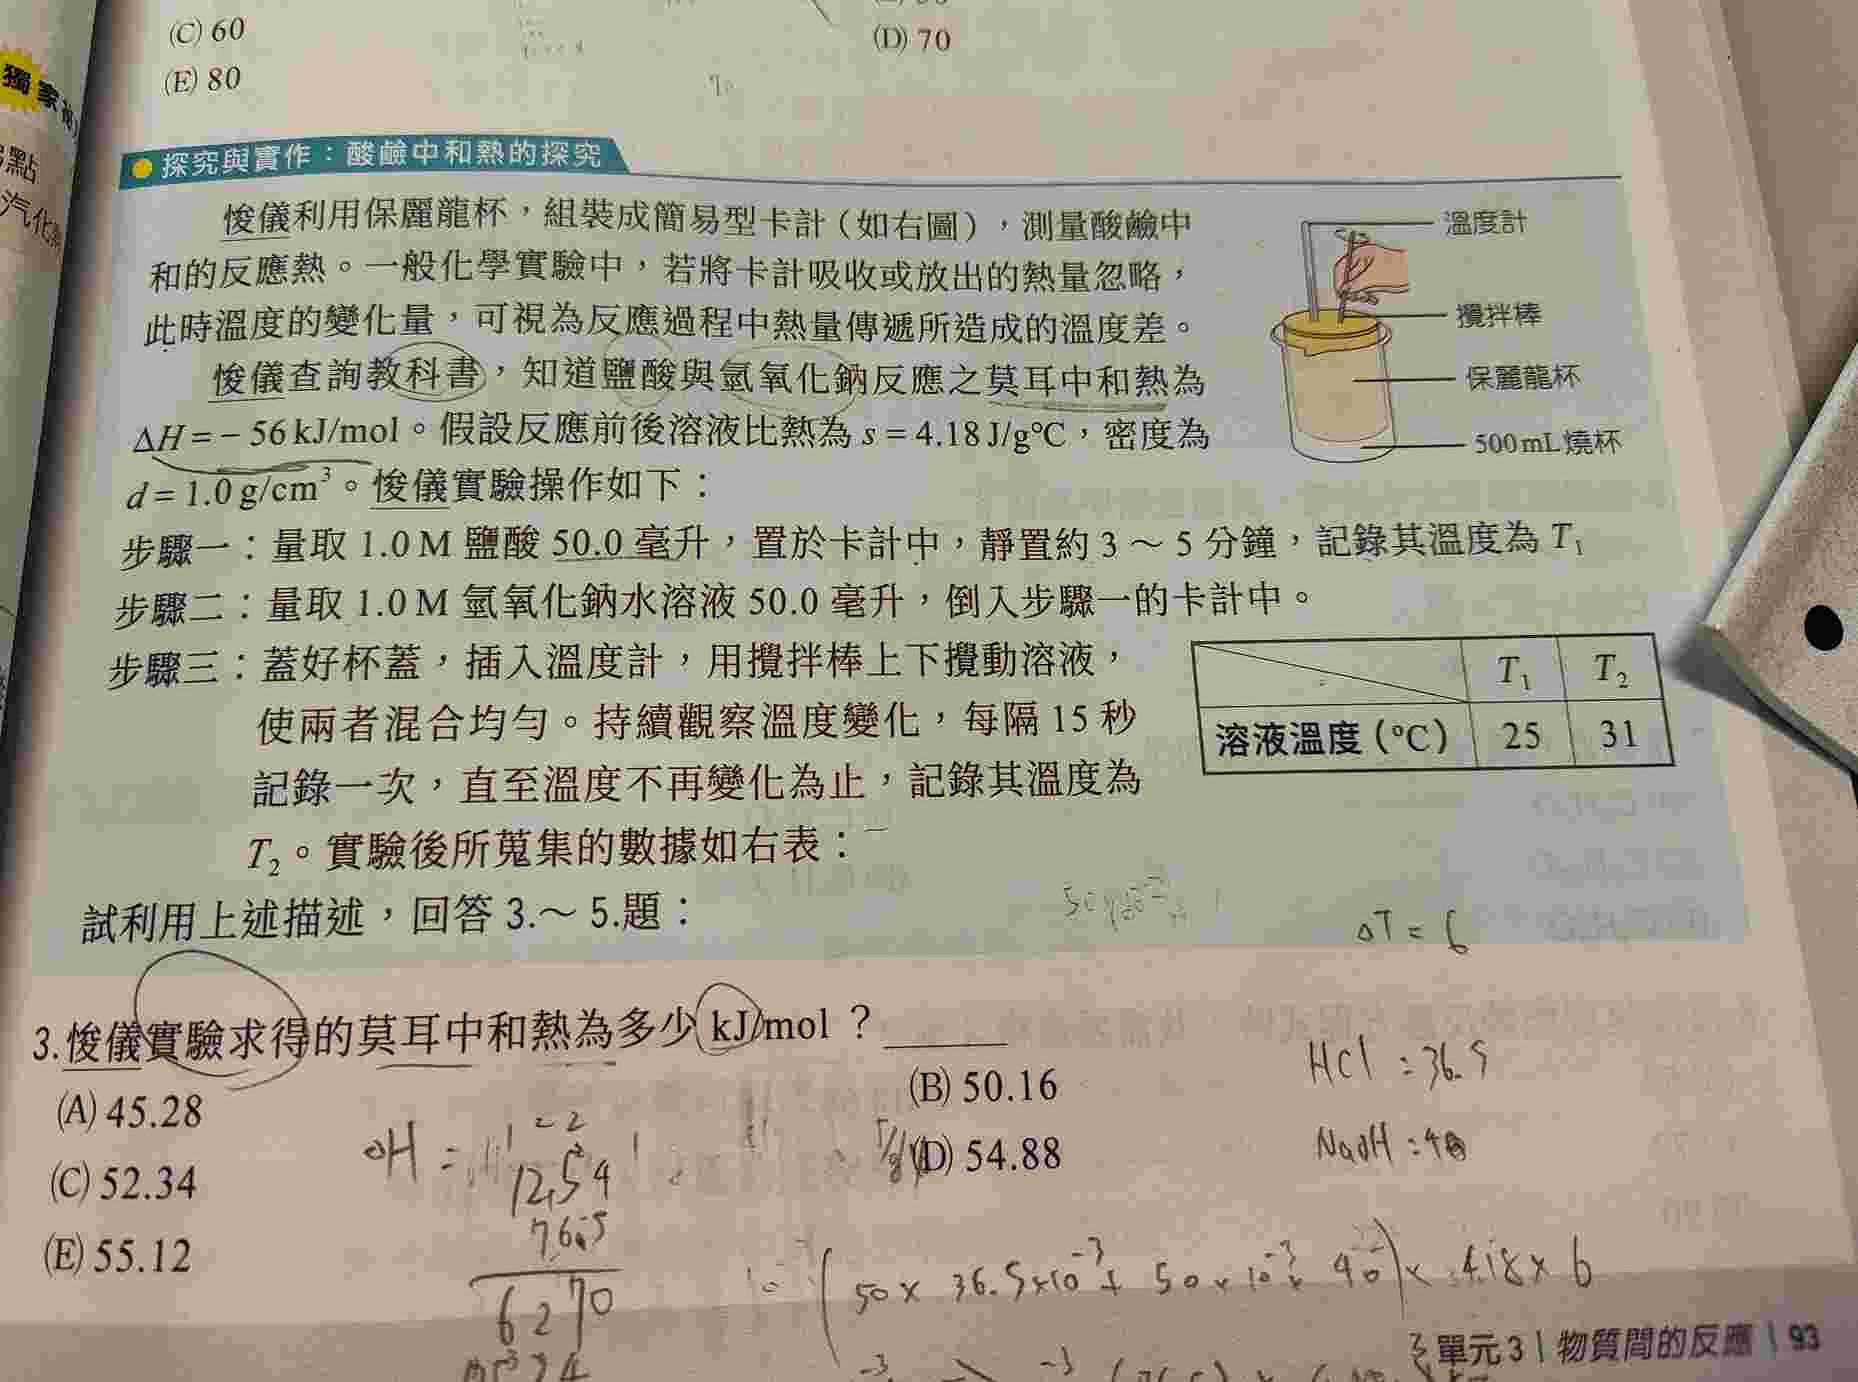 (C) 60
(D) 70
(E) 80
獨家
點
汽化
探究與實作：酸鹼中和熱的探究
悛儀利用保麗龍杯，組裝成簡易型卡計（如右圖），測量酸鹼中
和的反應熱。一般化學實驗中，若將卡計吸收或放出的熱量忽略，
此時溫度的變化量，可視為反應過程中熱量傳遞所造成的溫度差。
悛儀查詢教科書，知道鹽酸與氫氧化鈉反應之莫耳中和熱為
ΔH = − 56 kJ/mol。假設反應前後溶液比熱為 s = 4.18 J/g℃，密度為
d = 1.0 g/cm³。悛儀實驗操作如下：
溫度計
攪拌棒
保麗龍杯
500 mL 燒杯
步驟一：量取 1.0 M 鹽酸 50.0 毫升，置於卡計中，靜置約 3 ～ 5 分鐘，記錄其溫度為 T₁
步驟二：量取 1.0 M 氫氧化鈉水溶液 50.0 毫升，倒入步驟一的卡計中。
步驟三：蓋好杯蓋，插入溫度計，用攪拌棒上下攪動溶液，
使兩者混合均勻。持續觀察溫度變化，每隔 15 秒
記錄一次，直至溫度不再變化為止，記錄其溫度為
T₂。實驗後所蒐集的數據如右表：
T₁ T₂
溶液溫度（℃） 25 31
試利用上述描述，回答 3.～ 5.題：
ΔT = 6
3.悛儀實驗求得的莫耳中和熱為多少 kJ/mol？
(A) 45.28
(B) 50.16
(C) 52.34
(D) 54.88
(E) 55.12
HCl : 36.5
NaOH : 40
ΔH =
12.54
76.5
6270
(50 × 36.5×10⁻³ + 50 × 10⁻³ × 40) × 4.18 × 6
單元 3 | 物質間的反應 | 93